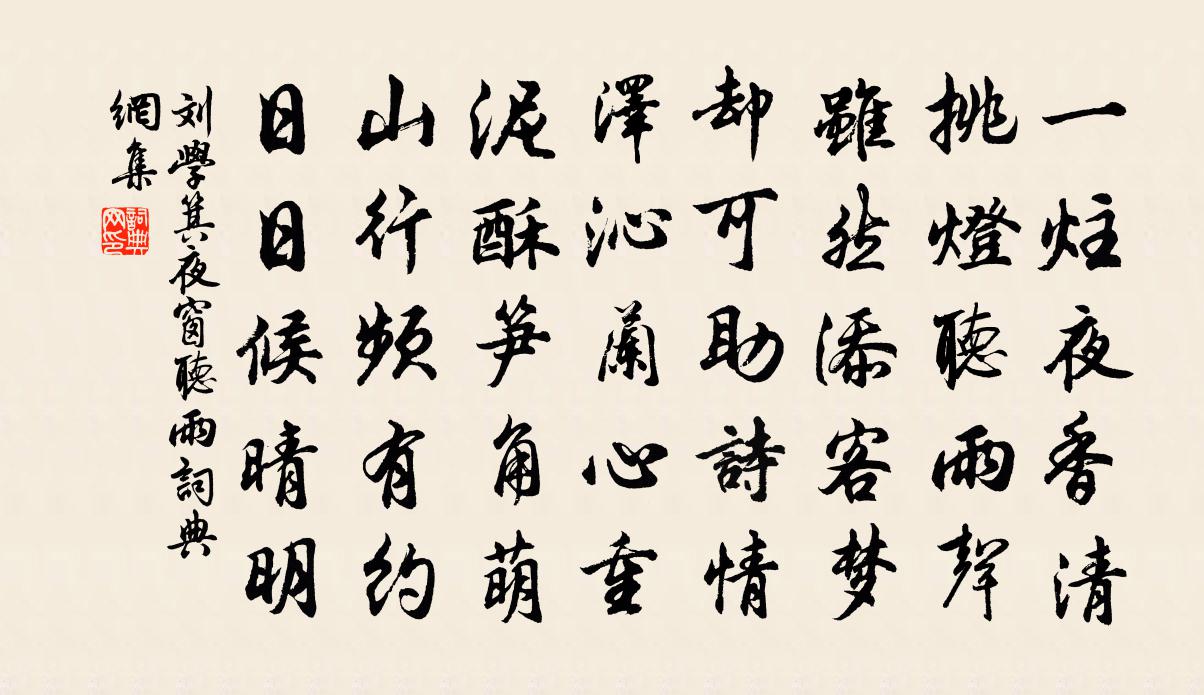 一炷夜香清
挑燈聽雨聲
雖然添客梦
却可助詩情
澤沁蘭心重
泥酥笋角萌
山行頻有約
日日候晴明
刘學箕夜窗聽雨詞典
網集
詞典网印